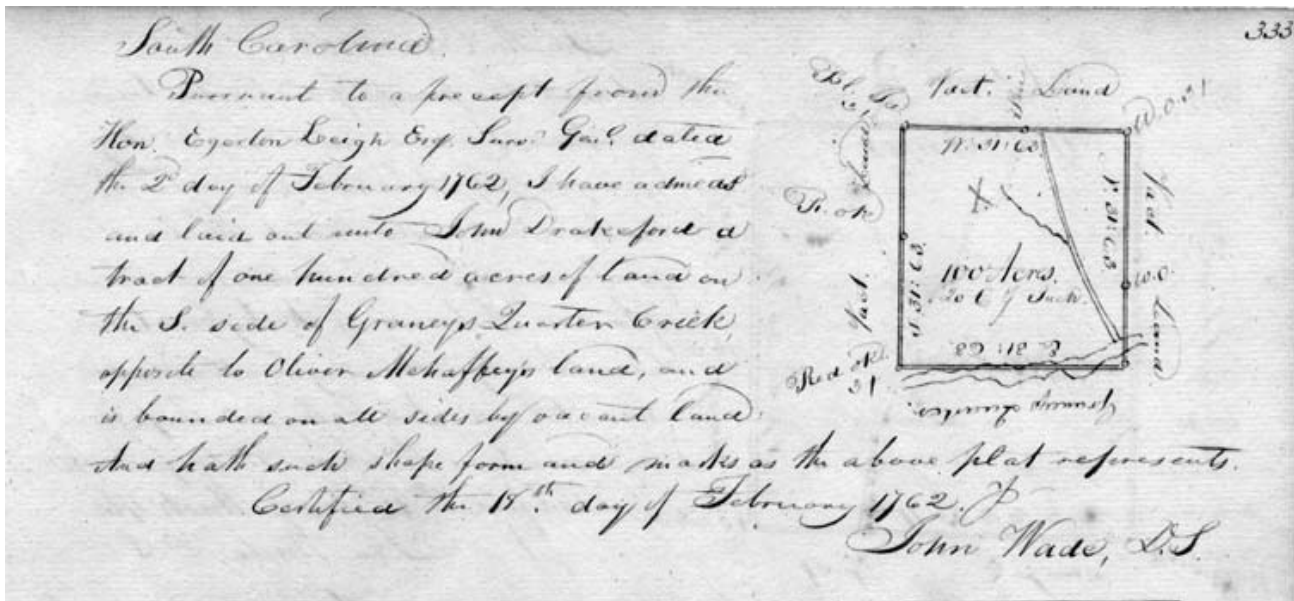 333
South Carolina.
Pursuant to a precept from the
Hon. Egerton Leigh Esq. Surv. Genl. dated
the 2d day of February 1762, I have admeasd
and laid out unto John Drakeford a
tract of one hundred acres of land on
the S. side of Graneys Quarter Creek,
opposite to Oliver Mehaffey's land, and
is bounded on all sides by vacant land
And hath such shape form and marks as the above plat represents.
Certified the 18th. day of February 1762.
John Wade, D.S.
Vact. Land
W.O. 31
W. 31:63
N. 31:63.
Vact. Land
W.O.
R. ok
Vact. Land
S. 31:63.
100 Acres.
20 C
Inch.
E. 31:63.
Red ok.
31
Graneys Quarter